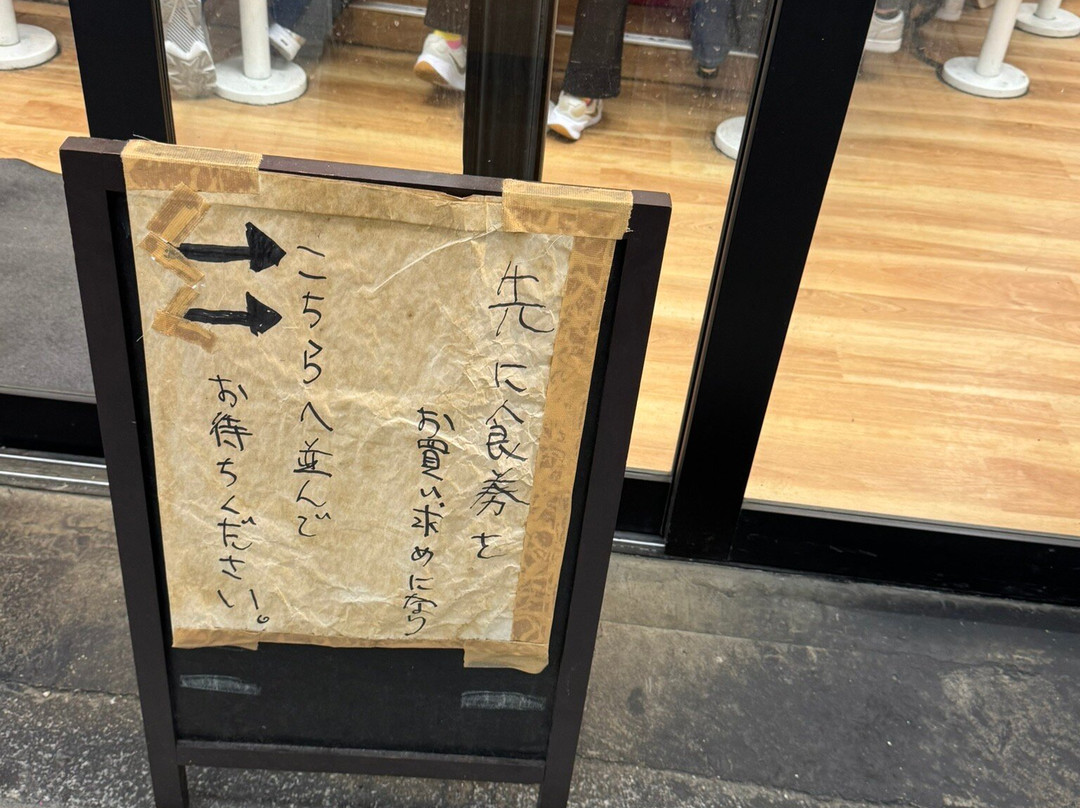 先に食券を
お買い求めになり
こちらへ並んで
お待ちください。